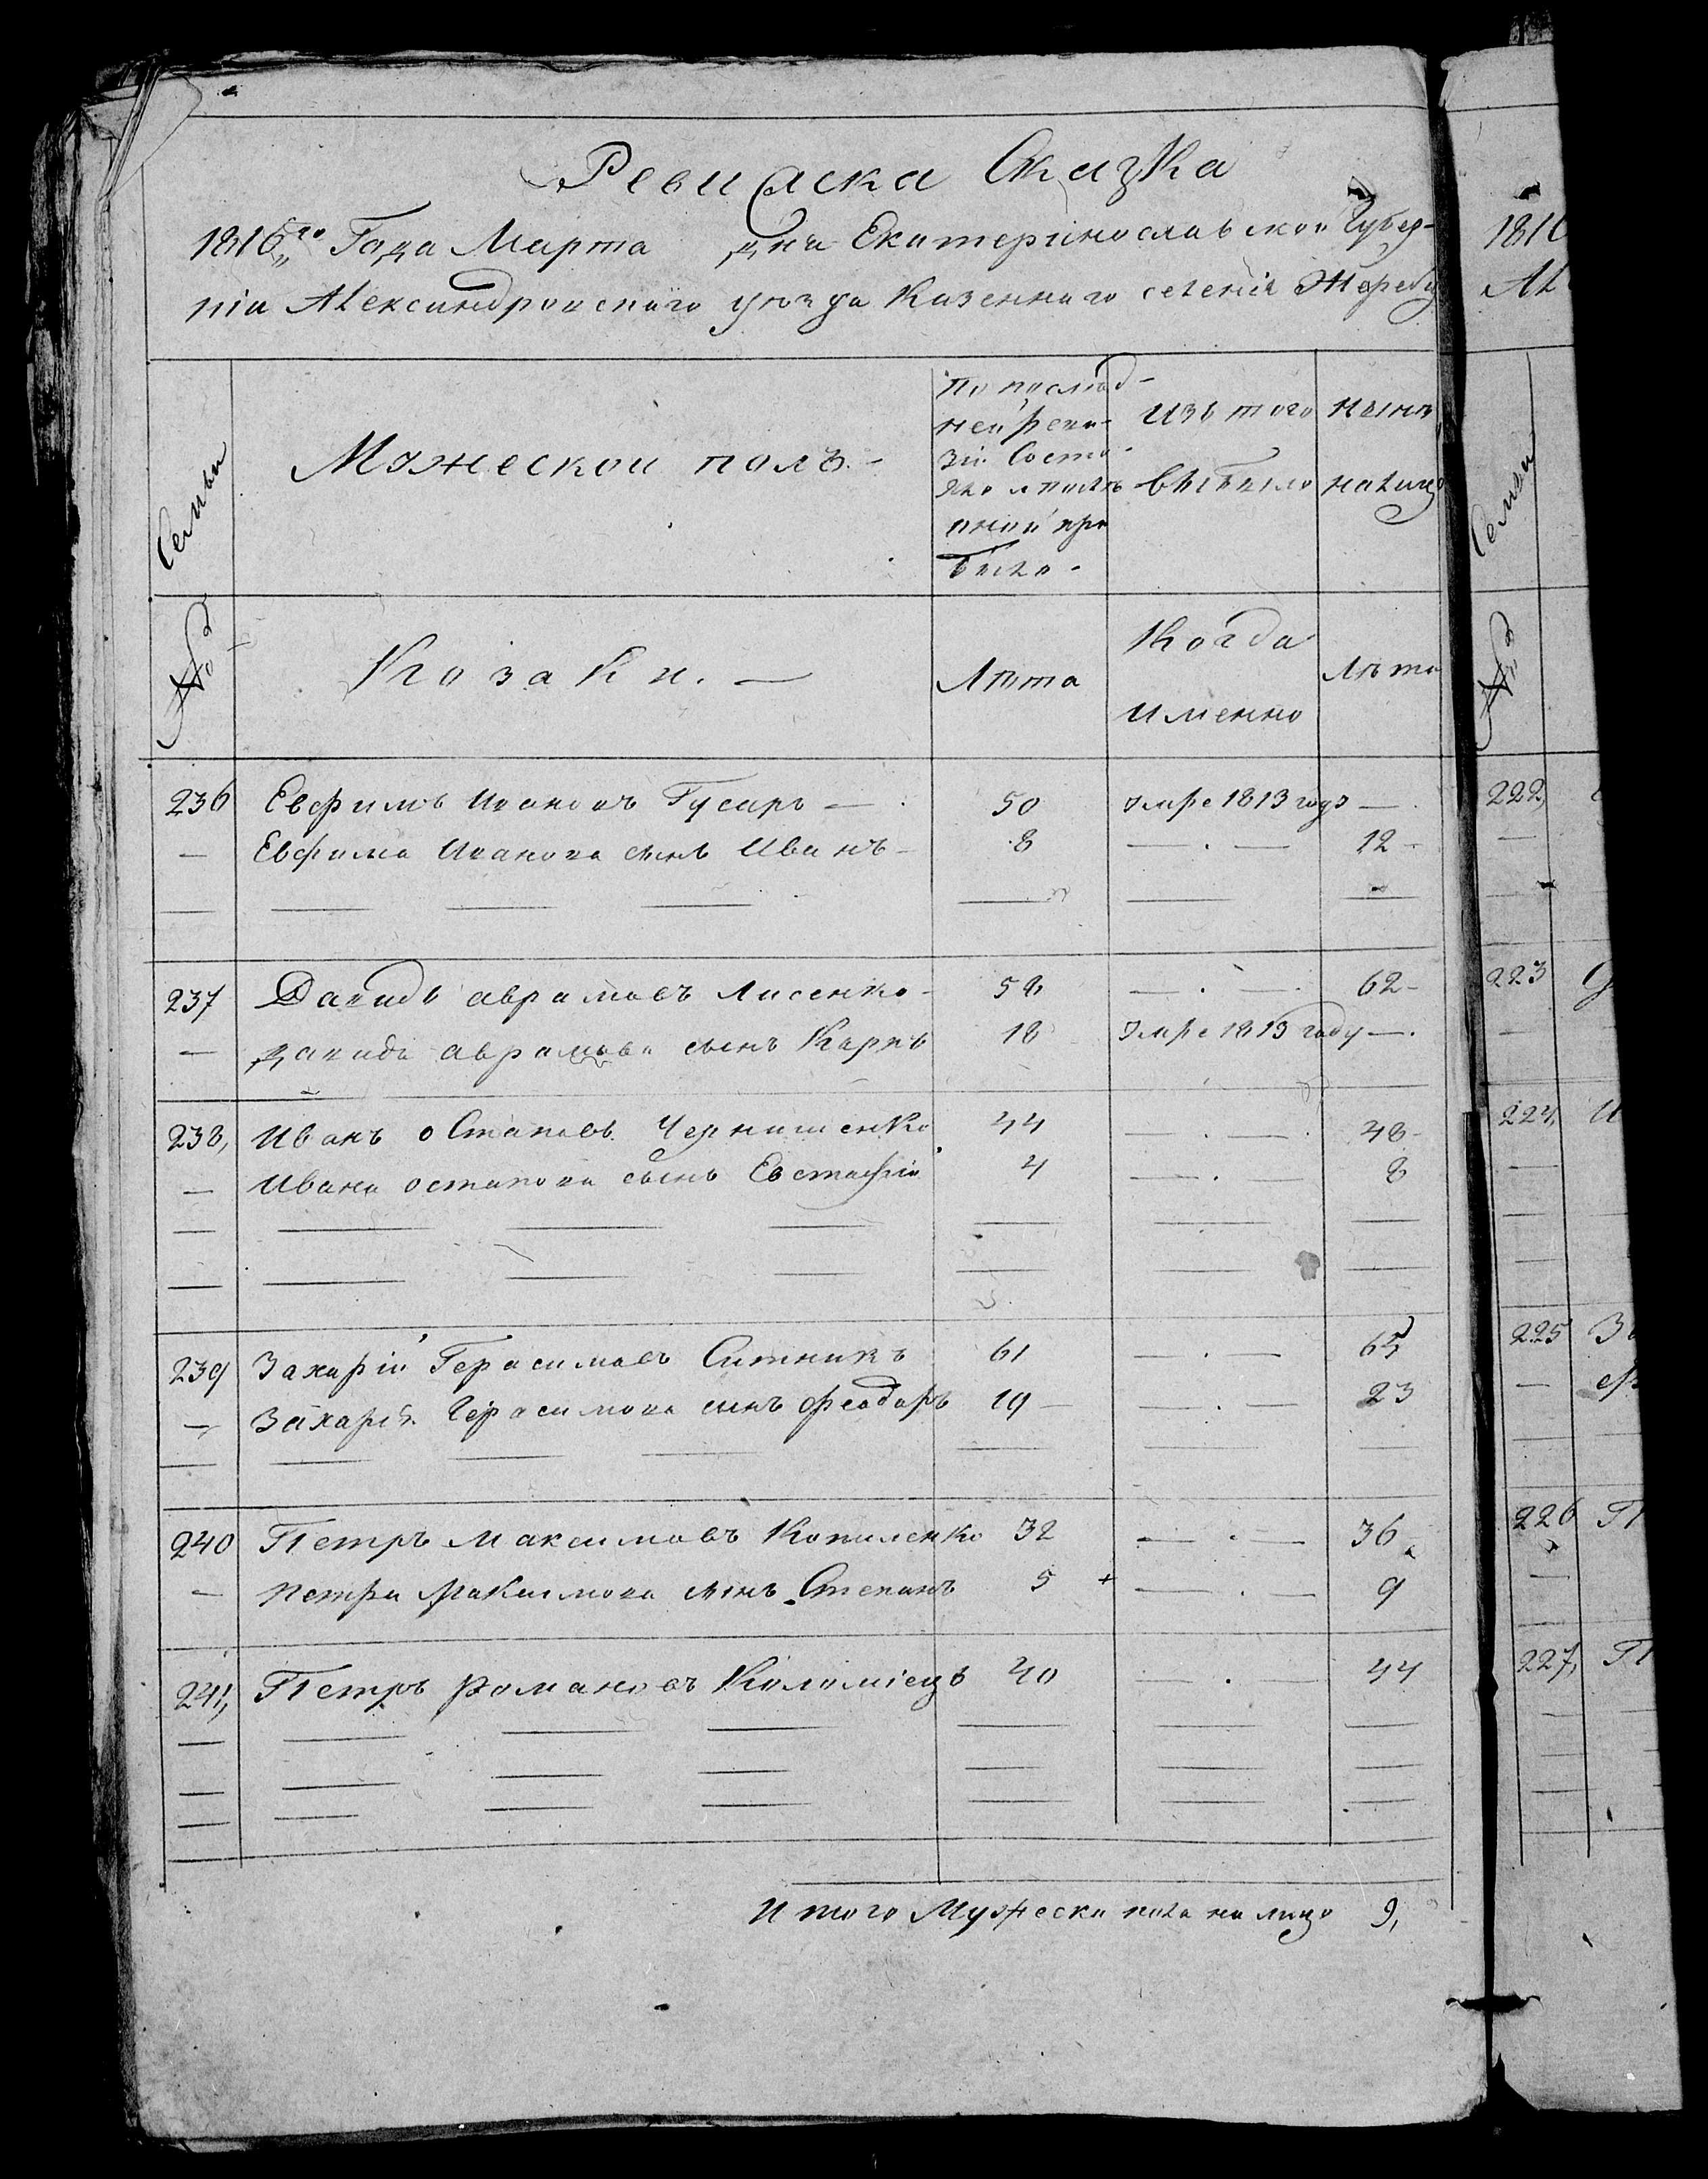 Ревизска Сказка
1816го Года Марта дня Екатеринославской Губер-
нiи Александровского уѣзда Казенного селенiя Жеребц
Семьи
Мужеской полъ.-
По послѣд-
ней реви-
зiи Состо-
яло и послѣ
оной при
было-
Изъ того
выбыло
Нынѣ
налицо
№
Козаки. —
Лѣта
Когда
именно
Лѣта
236 Евфимъ Ивановъ Гусаръ — 50 умре 1813 году —
— Евфима Иванова сынъ Иванъ — 8 — . — 12 -
237 Давидъ аврамовъ Лисенко - 58 — . — 62 -
— Давида аврамова сынъ Карпъ 18 умре 1813 году —.
238, Иванъ Остаповъ Чернишенко 44 — . — 48 -
— Ивана остапова сынъ Евстафiй 4 — . — 8
239 Захарiй Герасимовъ Ситникъ 61 — . — 65
— Захарiя Герасимова сынъ Феодоръ 19 — — . — 23
240 Петръ Максимовъ Копиленко 32 — . — 36
— Петра Максимова сынъ Степанъ 5 + — . — 9
241, Петръ Романовъ Коломiецъ 40 — . — 44
Итого Мужеска пола на лицо 9,
1816
Ал
Семьи
№
222,
223
224, И
225 За
226 П
227, П